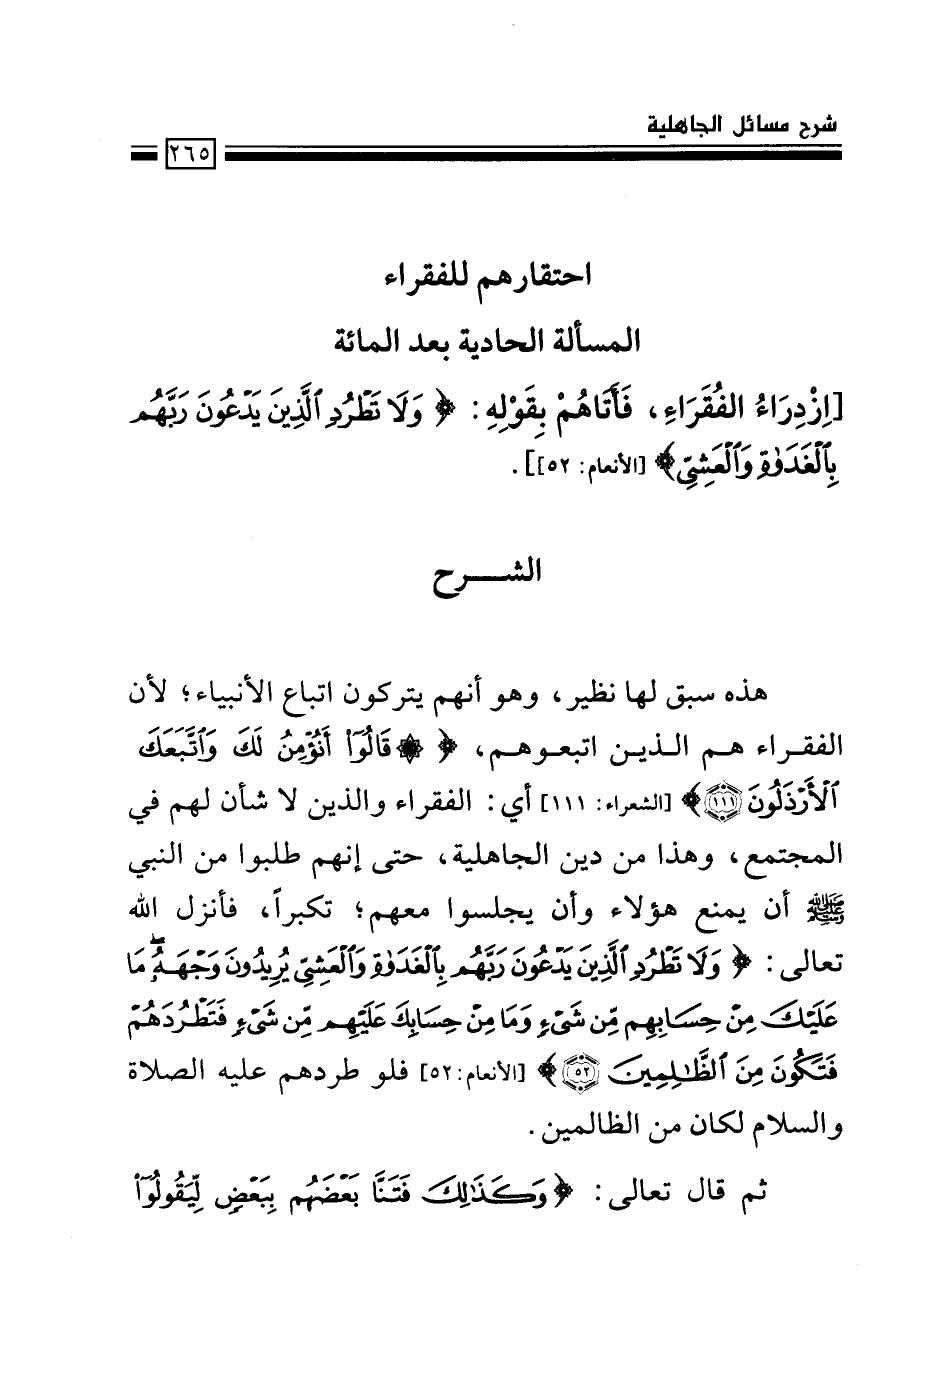 شرح مسائل الجاهلية
٢٦٥
احتقارهم للفقراء
المسألة الحادية بعد المائة
[اِزْدِرَاءُ الفُقَرَاءِ، فَأَتَاهُمْ بِقَوْلِهِ: ﴿ وَلَا تَطْرُدِ ٱلَّذِينَ يَدْعُونَ رَبَّهُم
بِٱلْغَدَوٰةِ وَٱلْعَشِيِّ﴾ [الأنعام: ٥٢]].
الشـــرح
هذه سبق لها نظير، وهو أنهم يتركون اتباع الأنبياء؛ لأن
الفقراء هم الذين اتبعوهم، ﴿ ۞ قَالُوٓا۟ أَنُؤْمِنُ لَكَ وَٱتَّبَعَكَ
ٱلْأَرْذَلُونَ ١١١﴾ [الشعراء: ١١١] أي: الفقراء والذين لا شأن لهم في
المجتمع، وهذا من دين الجاهلية، حتى إنهم طلبوا من النبي
ﷺ أن يمنع هؤلاء وأن يجلسوا معهم؛ تكبراً، فأنزل الله
تعالى: ﴿ وَلَا تَطْرُدِ ٱلَّذِينَ يَدْعُونَ رَبَّهُم بِٱلْغَدَوٰةِ وَٱلْعَشِيِّ يُرِيدُونَ وَجْهَهُۥۖ مَا
عَلَيْكَ مِنْ حِسَابِهِم مِّن شَىْءٍ وَمَا مِنْ حِسَابِكَ عَلَيْهِم مِّن شَىْءٍ فَتَطْرُدَهُمْ
فَتَكُونَ مِنَ ٱلظَّـٰلِمِينَ ٥٢﴾ [الأنعام: ٥٢] فلو طردهم عليه الصلاة
والسلام لكان من الظالمين.
ثم قال تعالى: ﴿ وَكَذَٰلِكَ فَتَنَّا بَعْضَهُم بِبَعْضٍ لِّيَقُولُوٓا۟